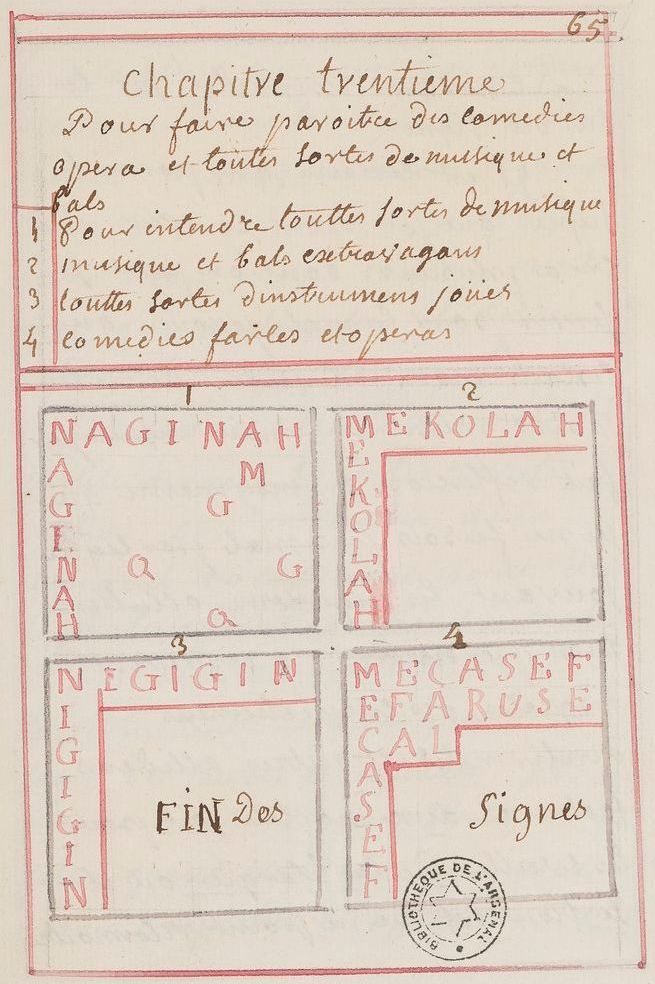 65
Chapitre trentieme
Pour faire paroitre des comedies
opera et toutes sortes de musique et
bals
1 Pour entendre touttes sortes de musique
2 musique et bals extravagans
3 touttes sortes dinstrumens joües
4 comedies farses et operas
1
NAGINAH
A M
G G
E
N Q G
A
H Q
2
MEKOLAH
E
K
O
L
A
H
3
NIGIGIN
I
G
I
G
I
N
FIN Des
4
MECASEF
EFARUSE
CAL
A
S
E
F
Signes
BIBLIOTHEQUE DE L'ARSENAL